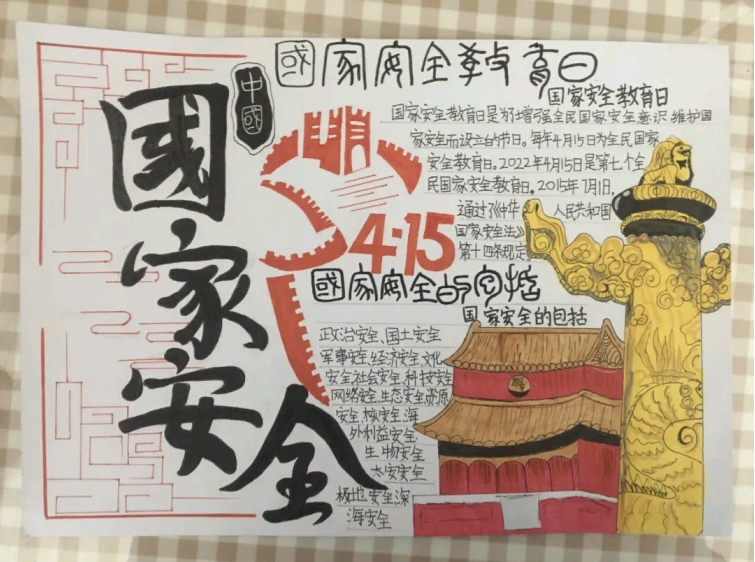 中國
國家安全
國家安全教育日
国家安全教育日
国家安全教育日是为了增强全民国家安全意识,维护国
家安全而设立的节日。每年4月15日为全民国家
安全教育日。2022年4月15日是第七个全
民国家安全教育日。2015年7月1日,
通过了《中华人民共和国
国家安全法》
第十四条规定。
4·15
國家安全的包括
国家安全的包括
政治安全、国土安全
军事安全、经济安全、文化
安全、社会安全、科技安全
网络安全、生态安全、资源
安全、核安全、海
外利益安全、
生物安全
太安安全
极地安全、深
海安全